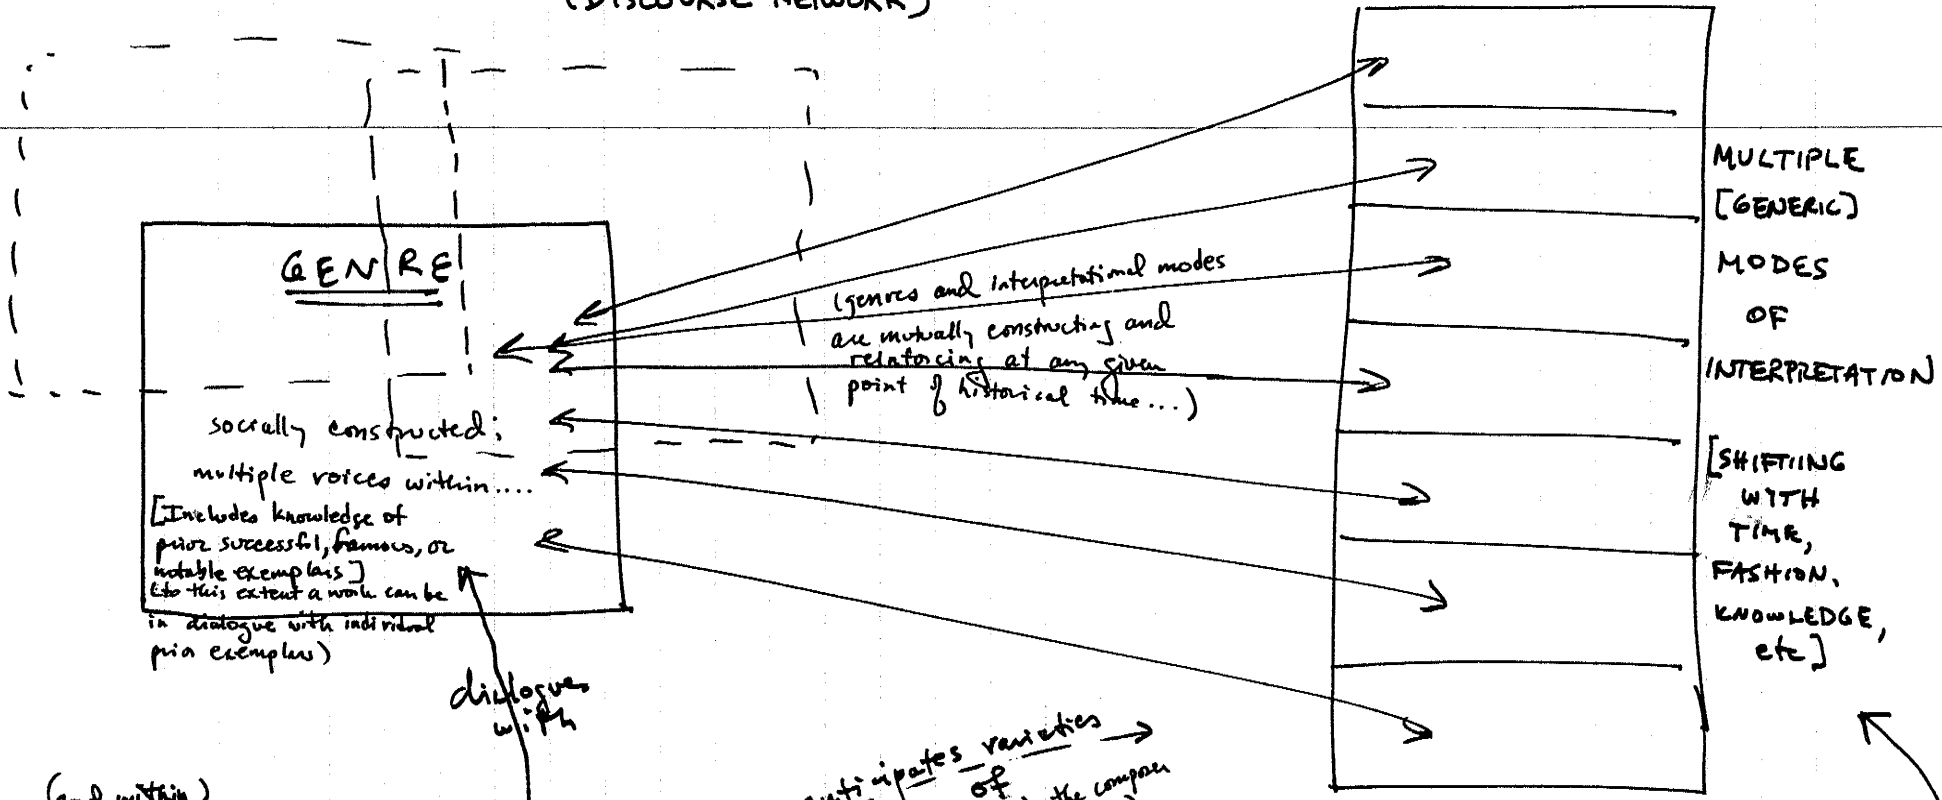 (DISCOURSE NETWORK)
GENRE
socially constructed;
multiple voices within....
[Includes knowledge of
prior successful, famous, or
notable exemplars]
(to this extent a work can be
in dialogue with individual
prior exemplars)
dialogues
with
(genres and interpretational modes
are mutually constructing and
reinforcing at any given
point of historical time...)
MULTIPLE
[GENERIC]
MODES
OF
INTERPRETATION
[SHIFTIING
WITH
TIME,
FASHION,
KNOWLEDGE,
etc]
(and within)
anticipates varieties
of
the composer